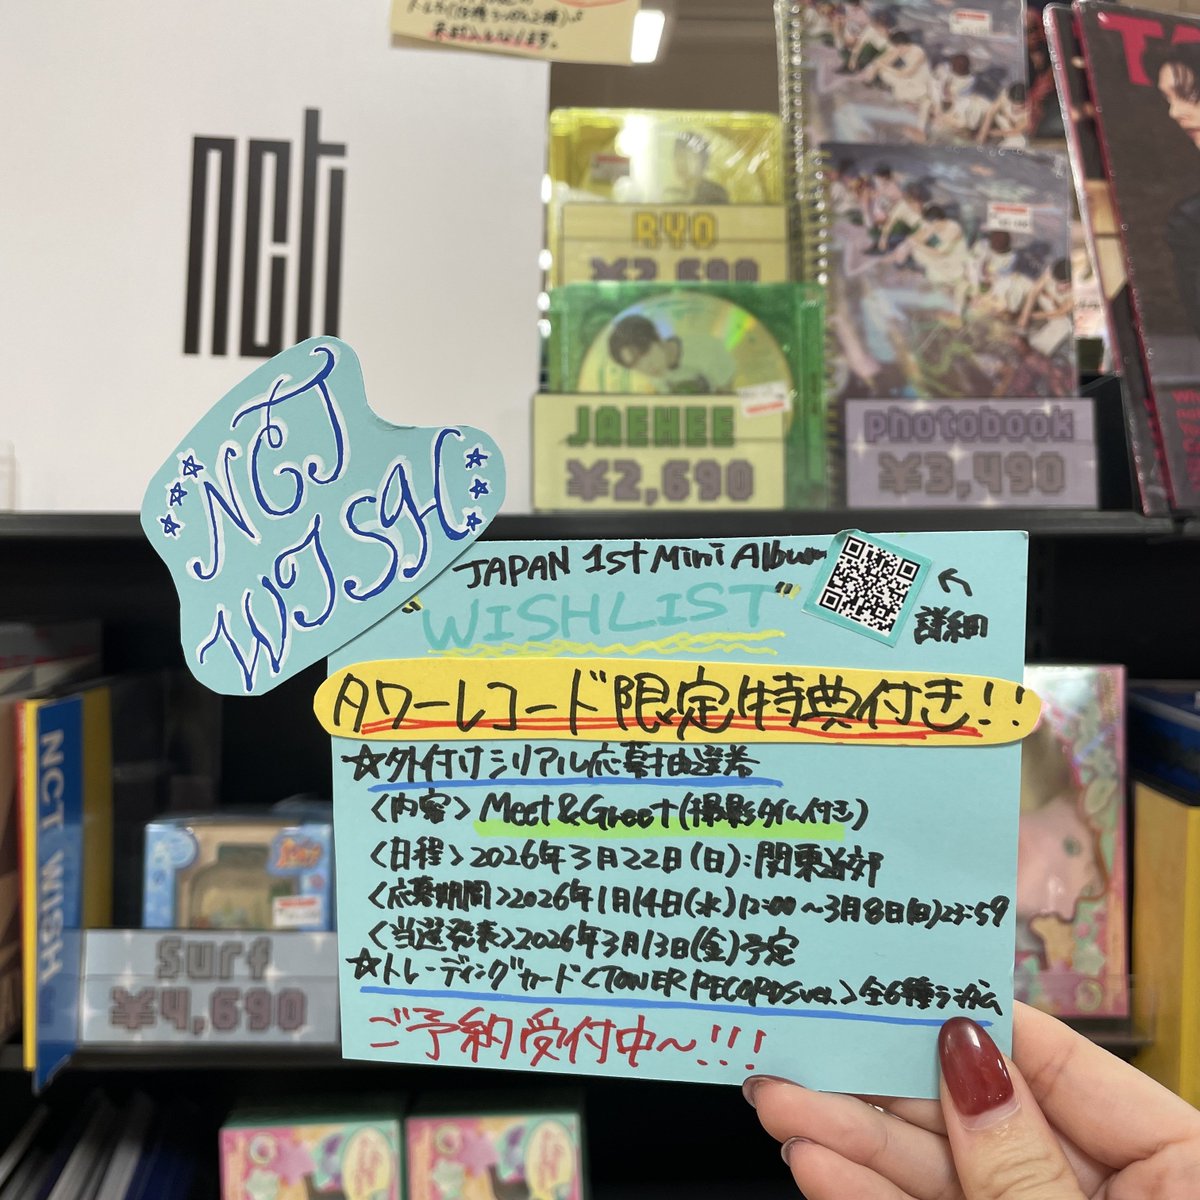 nct
RYO
¥2,690
JAEHEE
¥2,690
Photobook
¥3,490
NCT
WISH
JAPAN 1st Mini Album
"WISHLIST"
詳細
タワーレコード限定特典付き!!
☆外付けシリアル応募抽選券
<内容> Meet&Greet(撮影タイム付き)
<日程>2026年3月22日(日):関東近郊
<応募期間>2026年1月14日(水)12:00~3月8日(日)23:59
<当選発表>2026年3月13日(金)予定
☆トレーディングカード<TOWER RECORDS ver.>全6種ランダム
ご予約受付中~!!!
NCT WISH
Surf
¥4,690